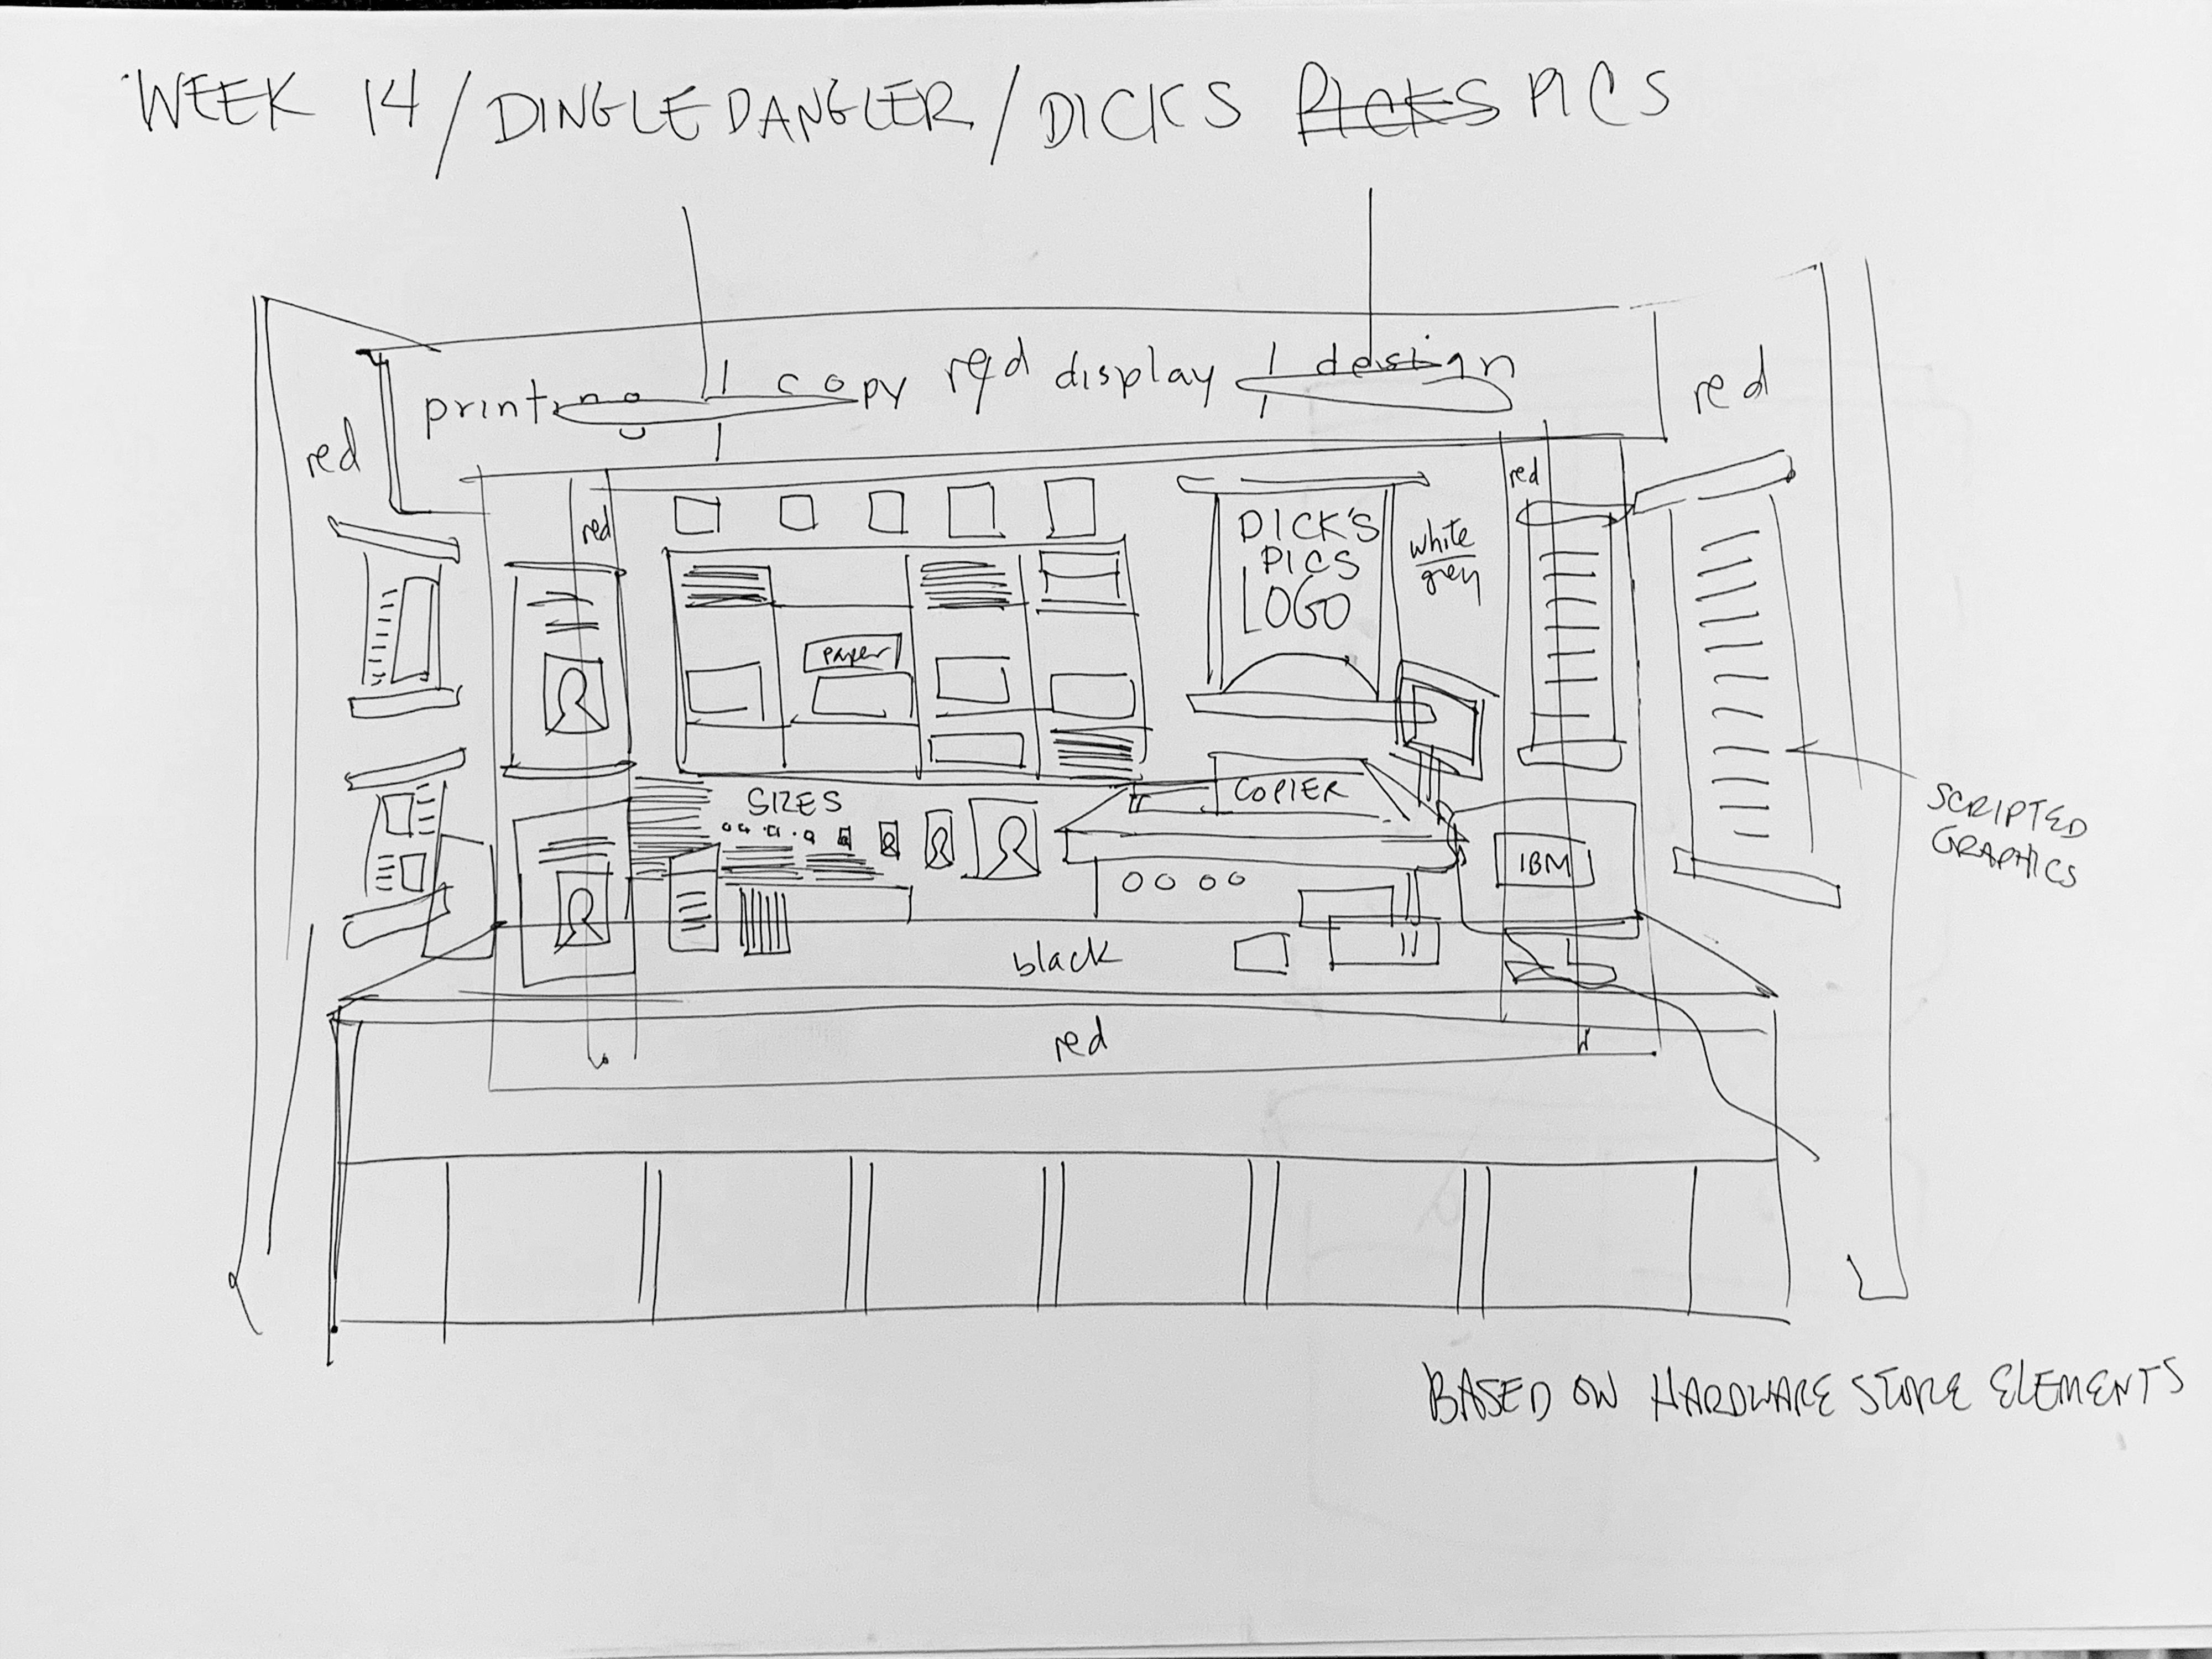 WEEK 14/DINGLEDANGLER/DICKS PICKS PICS
printing | copy red display | design
red
red
red
red
DICK'S
PICS
LOGO
white
grey
paper
SIZES
COPIER
IBM
SCRIPTED
GRAPHICS
black
red
BASED ON HARDWARE STORE ELEMENTS